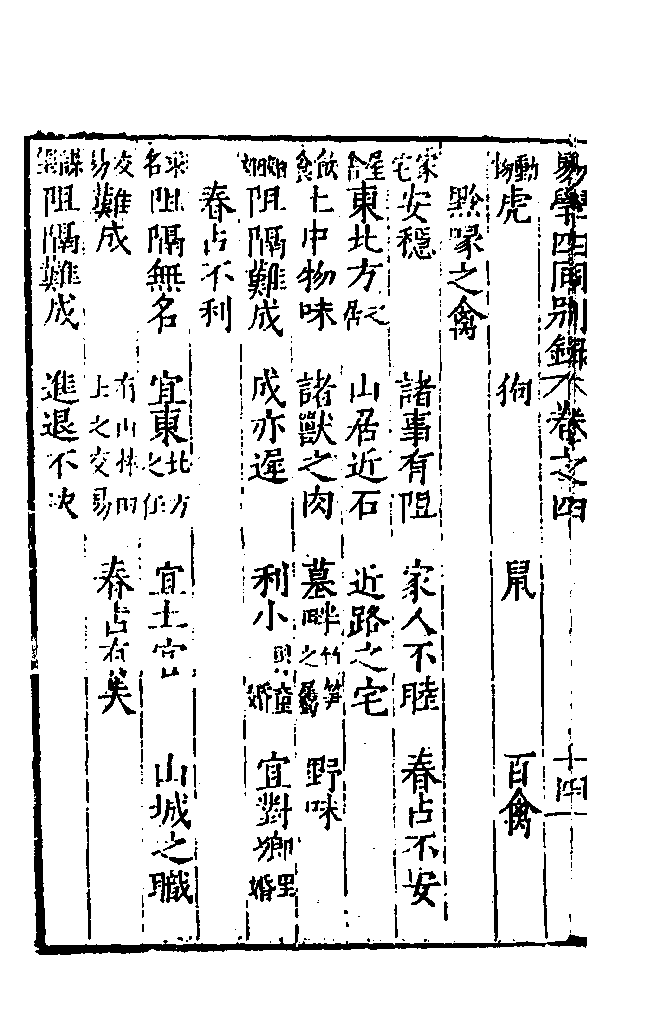 易學四同別錄卷之四 十四
動物 虎 狗 鼠 百禽
黔喙之禽
家宅 安穩 諸事有阻 家人不睦 春占不安
屋舍 東北方之居 山居近石 近路之宅
飲食 土中物味 諸獸之肉 墓畔竹笋之屬 野味
婚姻 阻隔難成 成亦遲 利小男童婚 宜對鄉里婚
春占不利
求名 阻隔無名 宜東北方之任 宜土官 山城之職
交易 難成 有山林田土之交易 春占有失
謀望 阻隔難成 進退不決